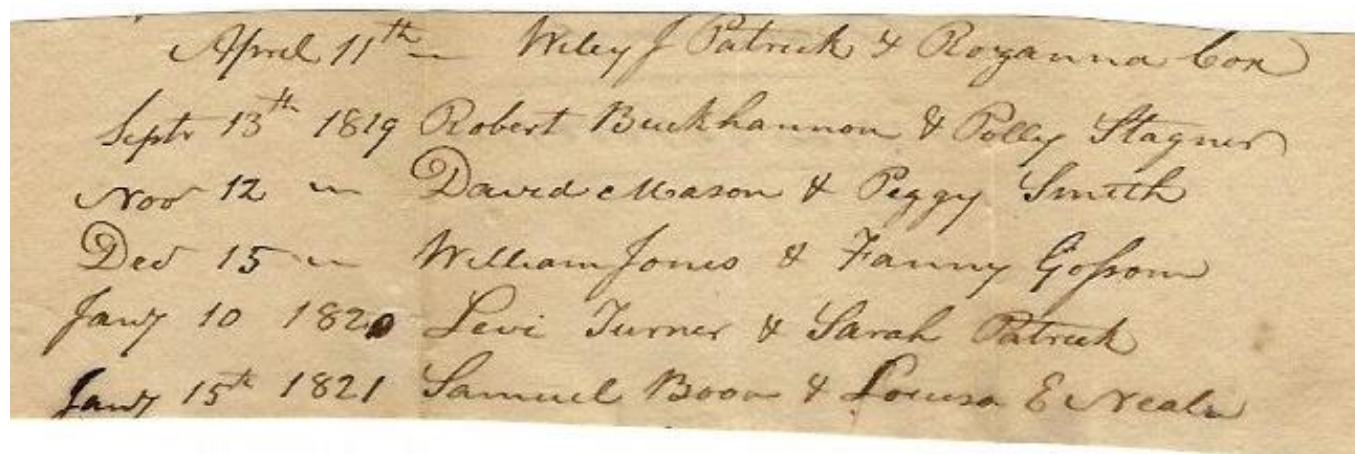 April 11th " Wiley J Patrick & Rozanna Cox
Septr 13th 1819 Robert Buckhannon & Polly Stagner
Nov 12 " David Mason & Peggy Smith
Dec 15 " William Jones & Fanny Goſsom
Jany 10 1820 Levi Turner & Sarah Patrick
Jany 15th 1821 Samuel Boon & E